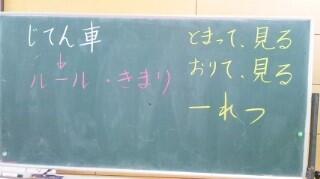 じてん車
↓
ルール・きまり
とまって、見る
おりて、見る
一れつ